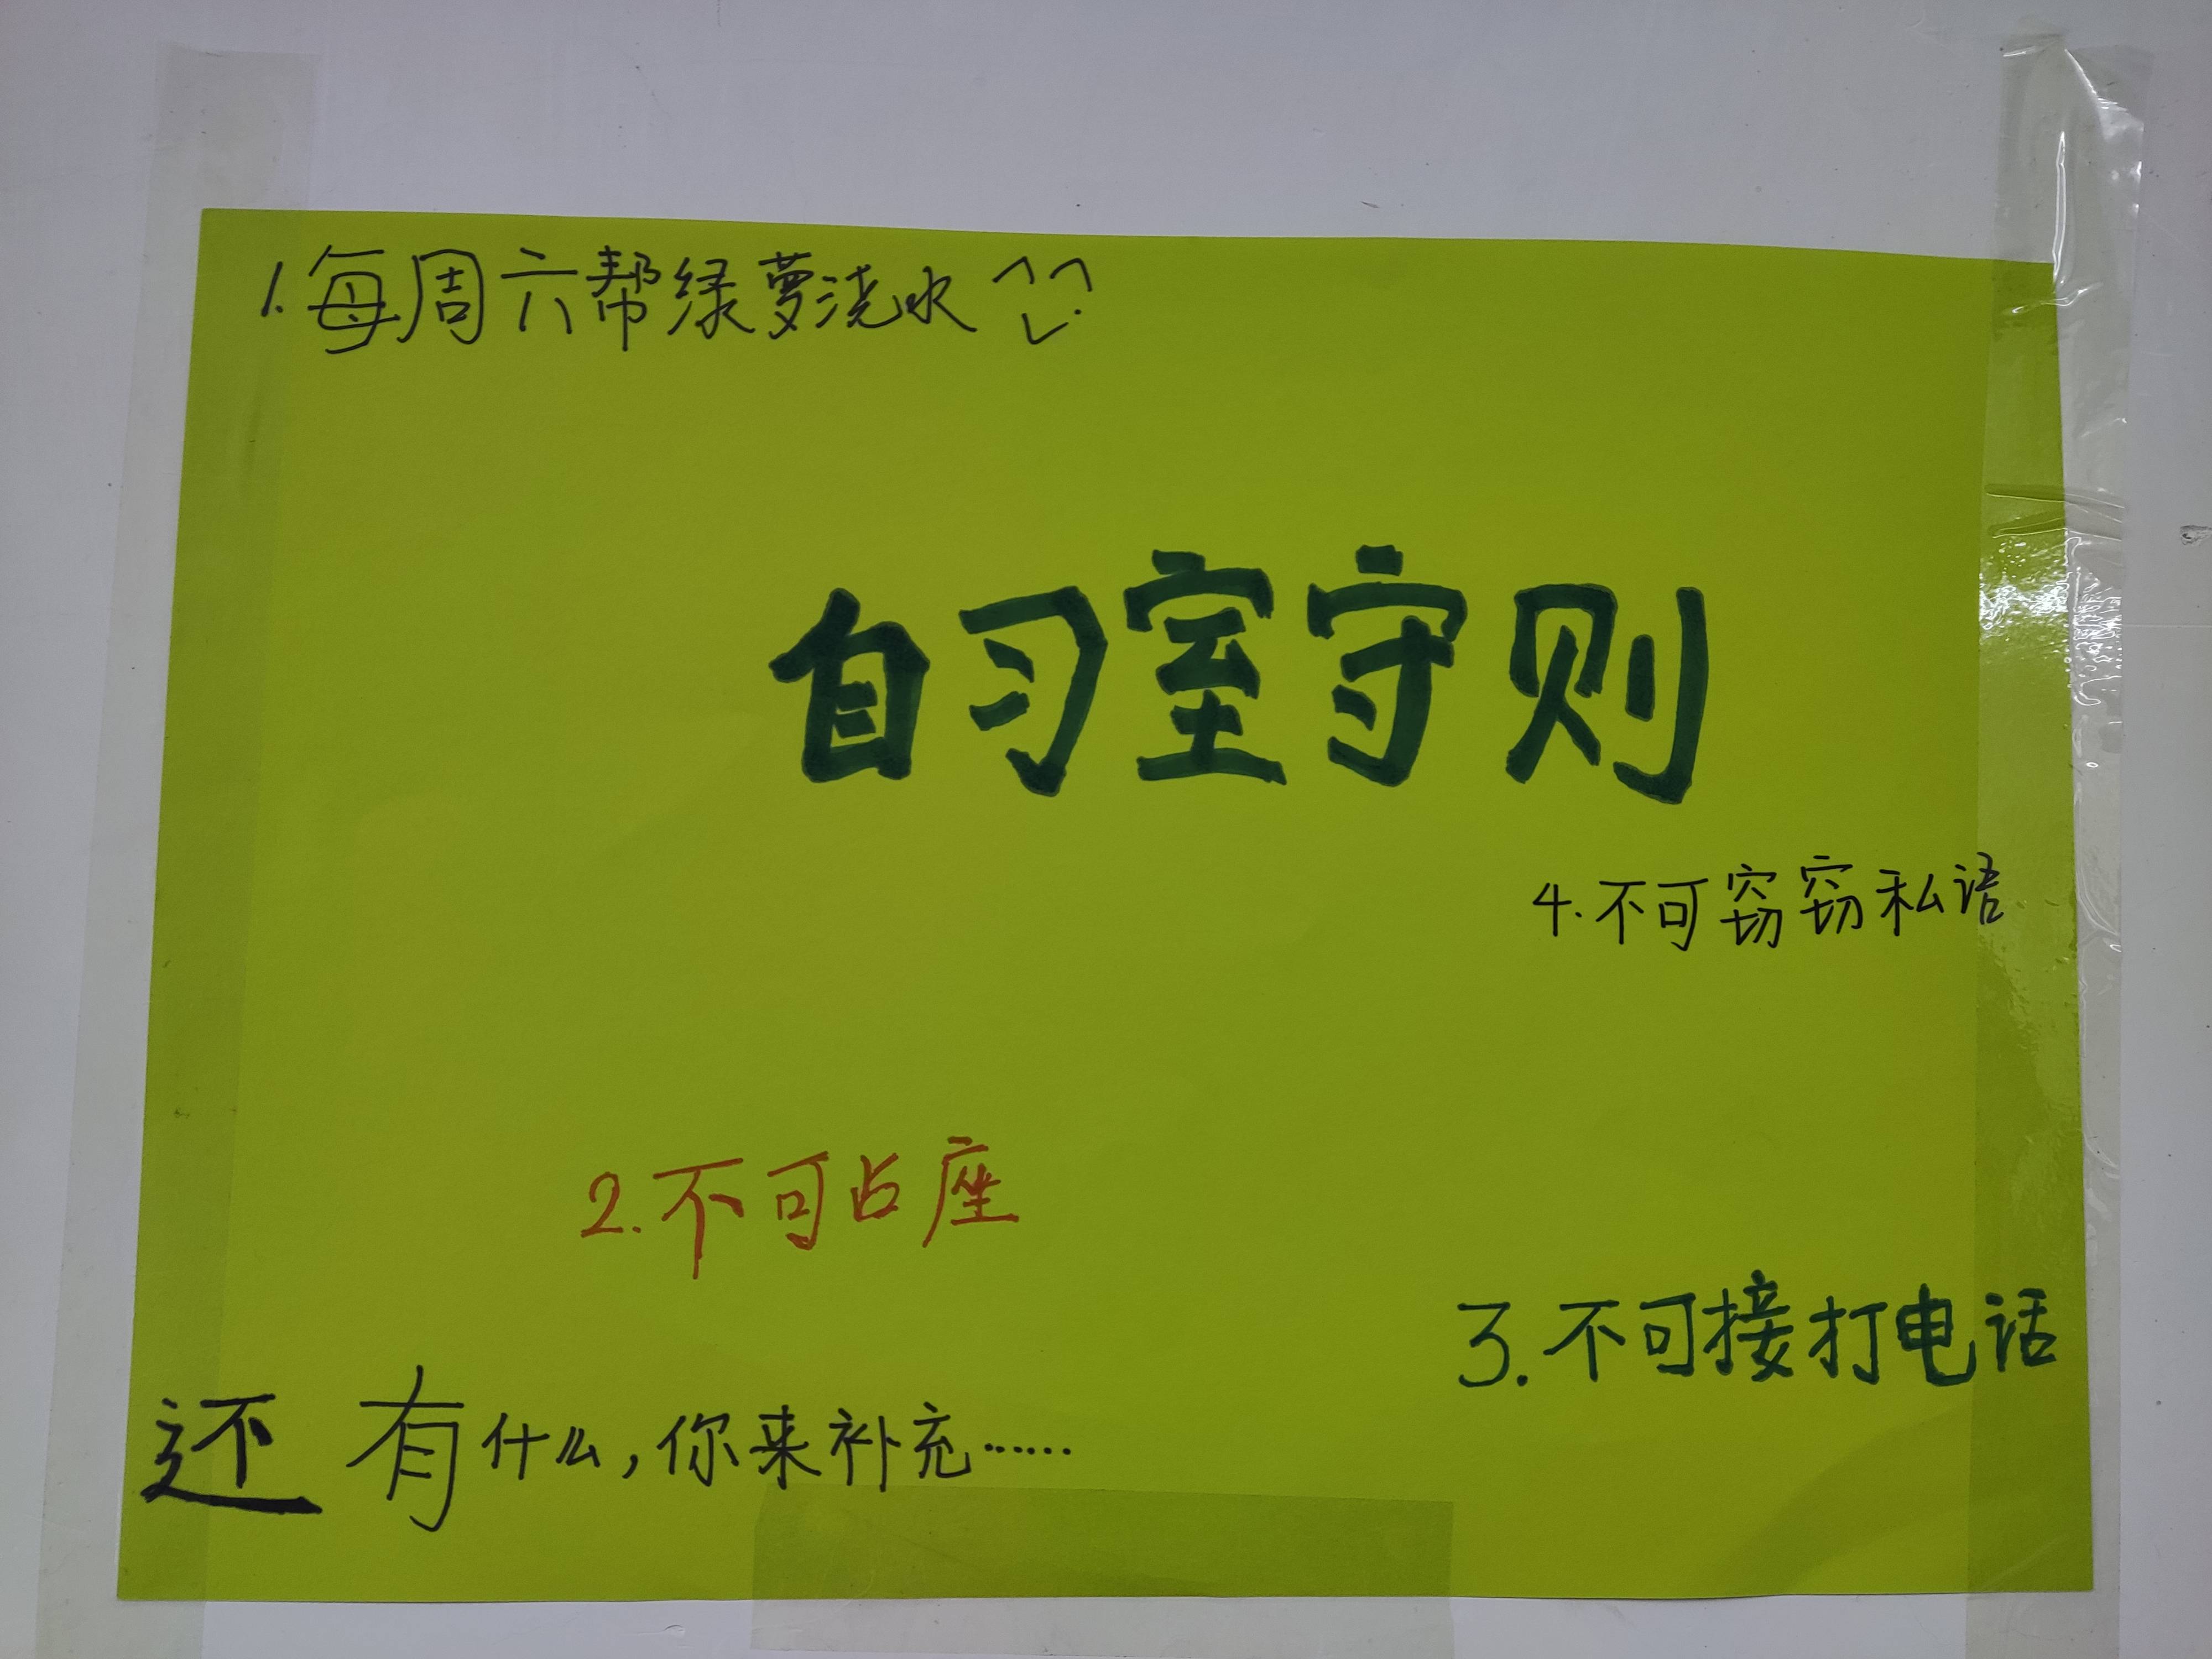 1.每周六帮绿萝浇水^^
自习室守则
4.不可窃窃私语
2.不可占座
3.不可接打电话
还有什么,你来补充……